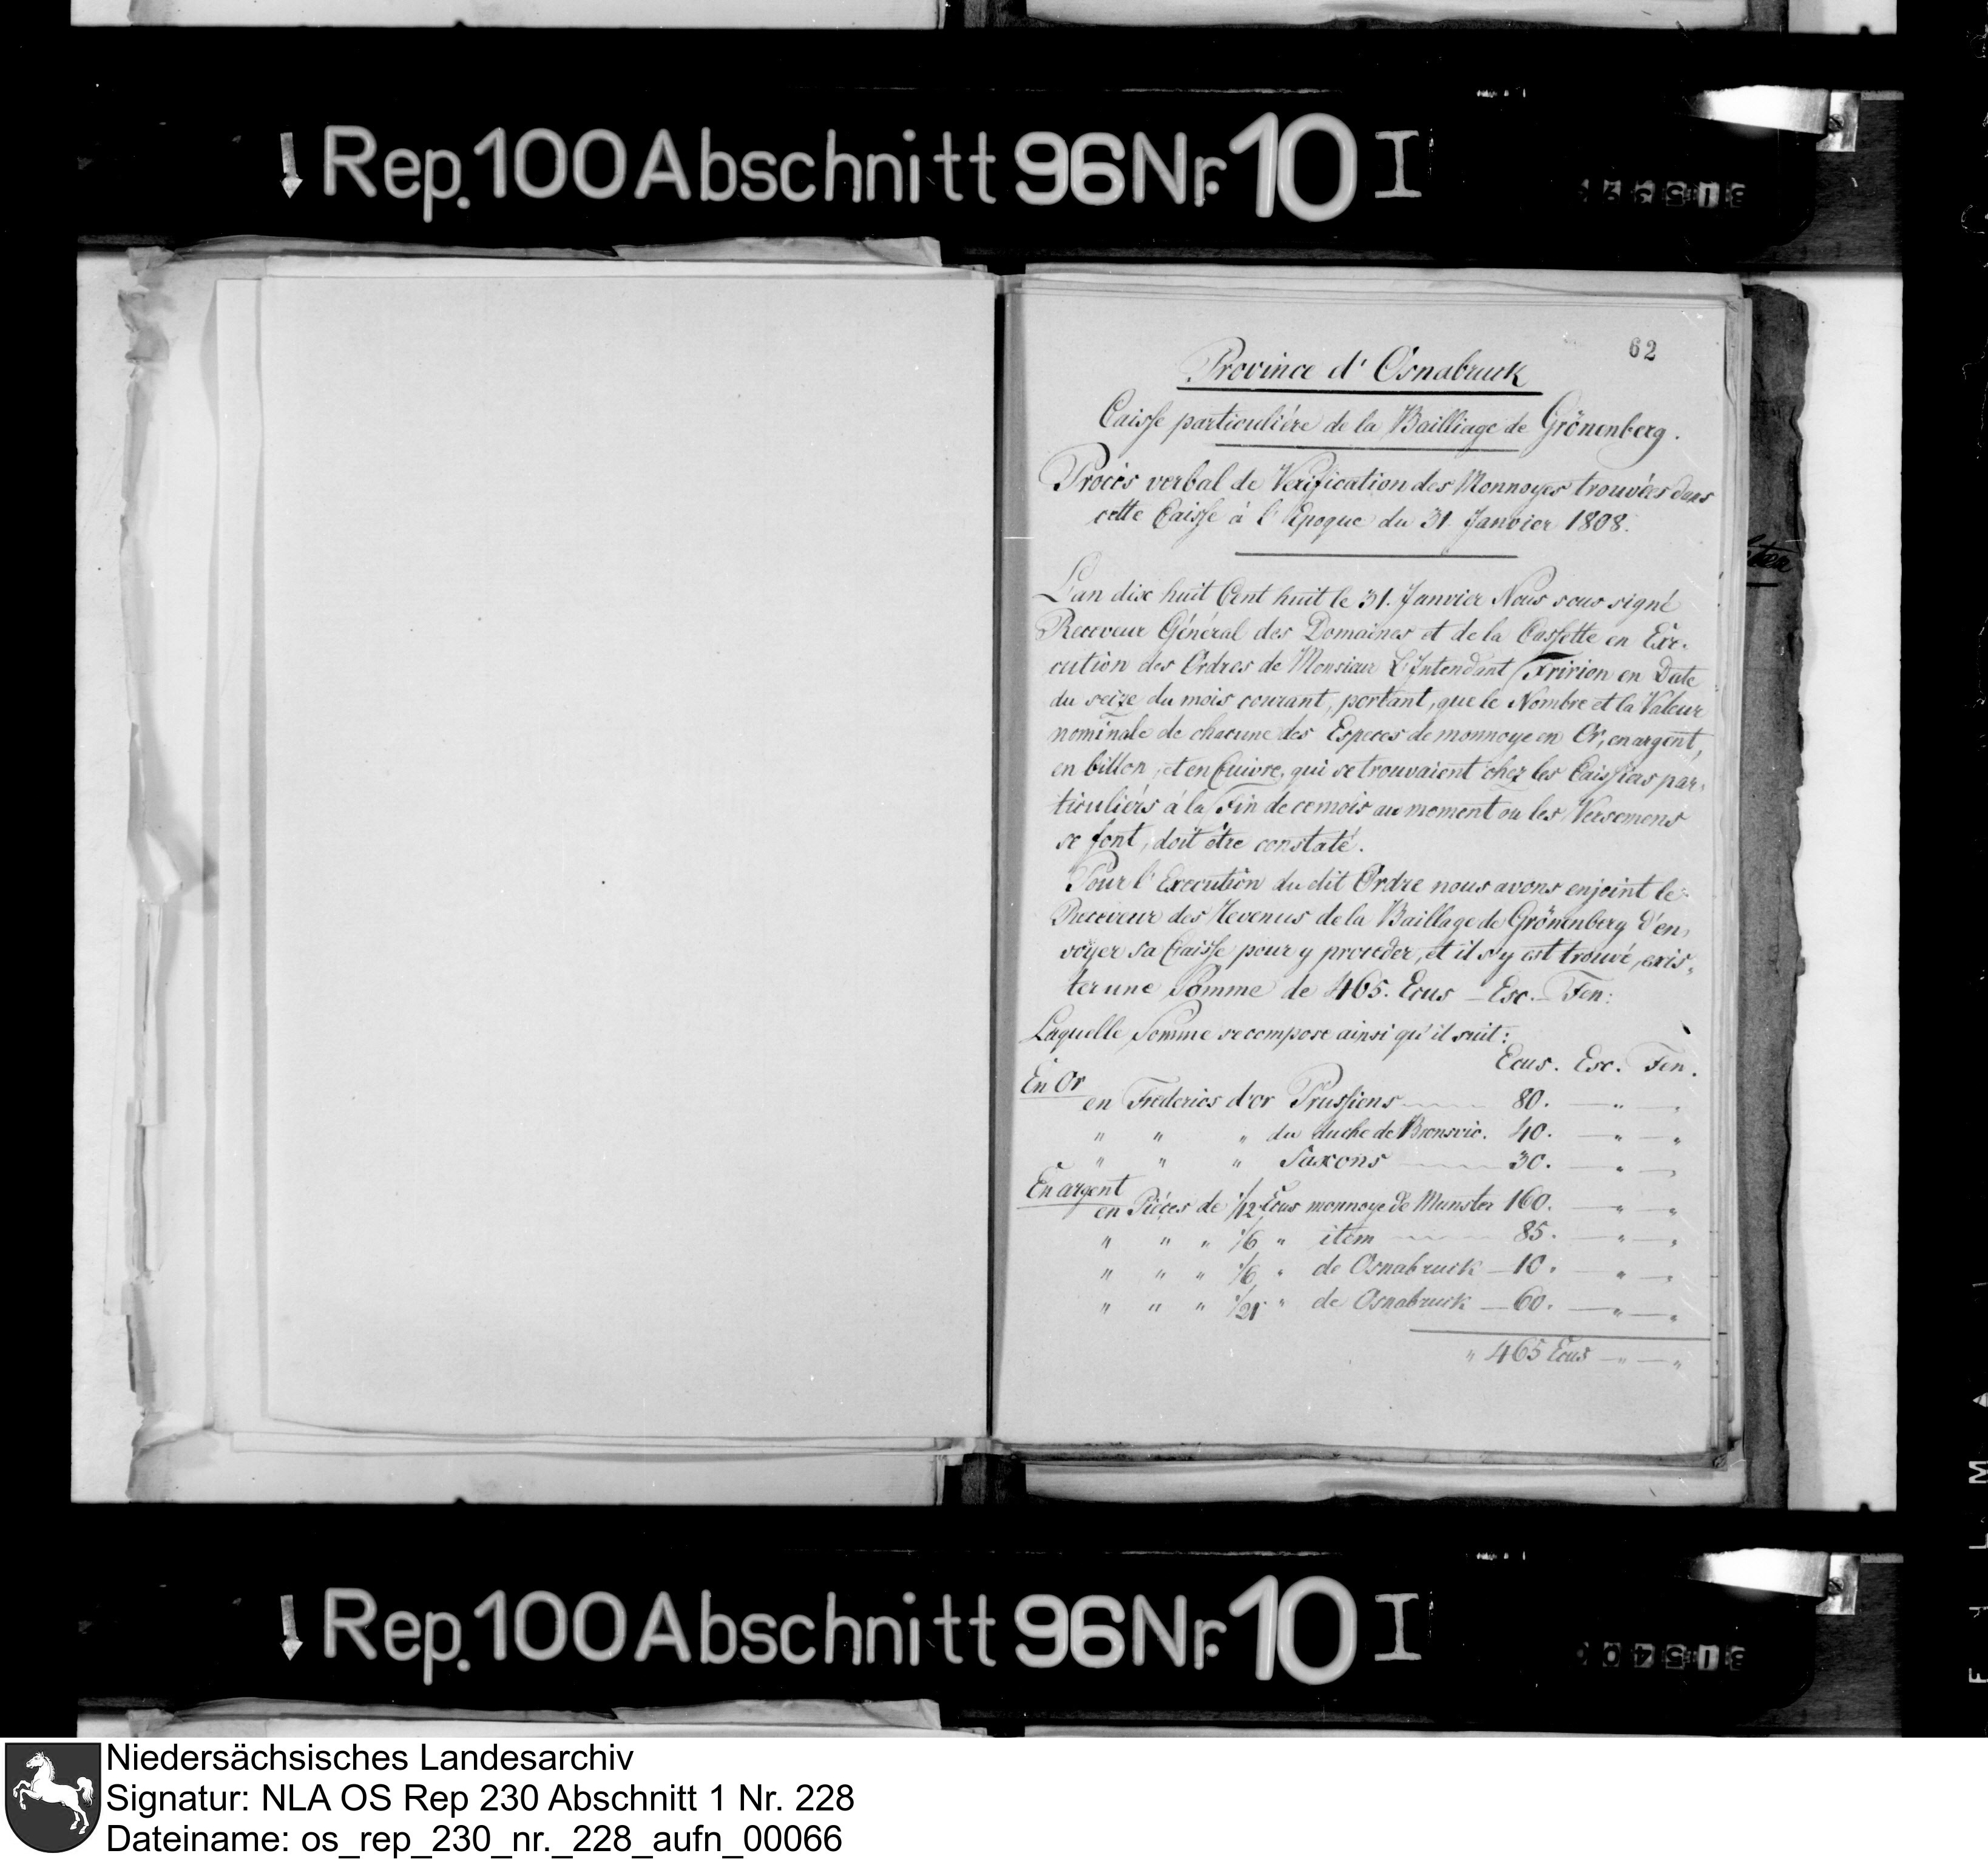 Rep. 100 Abschnitt 96 Nr. 10 I
62
Province d'Osnabruck
Caisse particuliére de la Bailliage de Grönenberg.
Procès verbal de Verification des Monnoyes trouvées dans
cette Caisse à l'Epoque du 31. Janvier 1808.
L'an dix huit Cent huit le 31. Janvier Nous sous signé
Receveur Général des Domaines et de la Cassette en Exe-
cution des Ordres de Monsieur L'Intendant Fririon en Date
du seize du mois courant, portant, que le Nombre et la Valeur
nominale de chacune des Especes de monnoye en Or, en argent,
en billon, et en Cuivre, qui se trouvaient chez les Caissiers par-
ticuliers à la Fin de ce mois au moment ou les Versemens
se font, doit être constaté.
Pour l'Execution du dit Ordre nous avons enjoint le
Receveur des Revenus de la Baillage de Grönenberg d'en-
voyer sa Caisse pour y proceder, et il s'y est trouvé, exis-
ter une Somme de 465. Ecus — Esc. — Fen:
Laquelle Somme se compose ainsi qu'il suit:
Ecus. Esc. Fen.
En Or
en Frederics d'or Prussiens 80. — " — "
" " " du duche de Bronsvic. 40. — " — "
" " " Saxons 30. — " — "
En argent
en Piéces de 1/12 Ecus monnoye de Munster 160. — " — "
" " " 1/6 " item 85. — " — "
" " " 1/6 " de Osnabruck — 10. — " — "
" " " 1/21 " de Osnabruck — 60. — " — "
" 465 Ecus — " — "
Rep. 100 Abschnitt 96 Nr. 10 I
Niedersächsisches Landesarchiv
Signatur: NLA OS Rep 230 Abschnitt 1 Nr. 228
Dateiname: os_rep_230_nr._228_aufn_00066